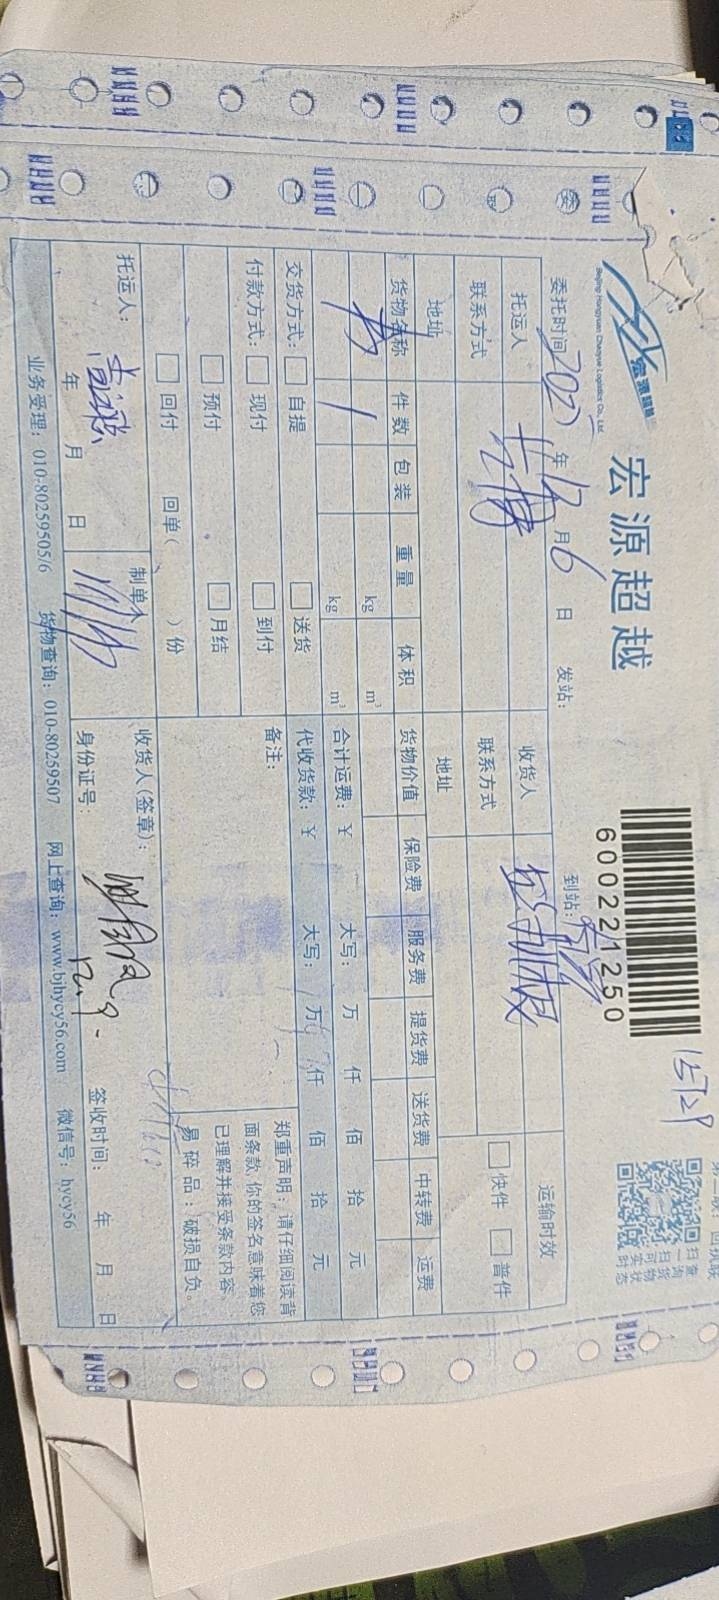 宏源超越
Beijing Hongyuan Chaoyue Logistics Co., Ltd.
宏源超越
600221250
15729
委托时间 年 12 月 6 日 发站： 到站：
托运人 收货人 运输时效
联系方式 联系方式 快件 普件
地址 地址
货物名称 件数 包装 重量 体积 货物价值 保险费 服务费 提货费 送货费 中转费 运费
1 kg m³ 合计运费：¥ 大写： 万 仟 佰 拾 元
kg m³
交货方式： 自提 送货 代收货款：¥ 大写： 万 仟 佰 拾 元
付款方式： 现付 到付 备注：
预付 月结
回付 回单（ ）份
郑重声明：请仔细阅读背
面条款，你的签名意味着您
已理解并接受条款内容。
易碎品：破损自负。
托运人： 年 月 日 制单人 收货人(签章)：
身份证号： 12.9. 签收时间： 年 月 日
业务受理：010-80259505/6 货物查询：010-80259507 网上查询：www.bjhycy56.com 微信号：hycy56